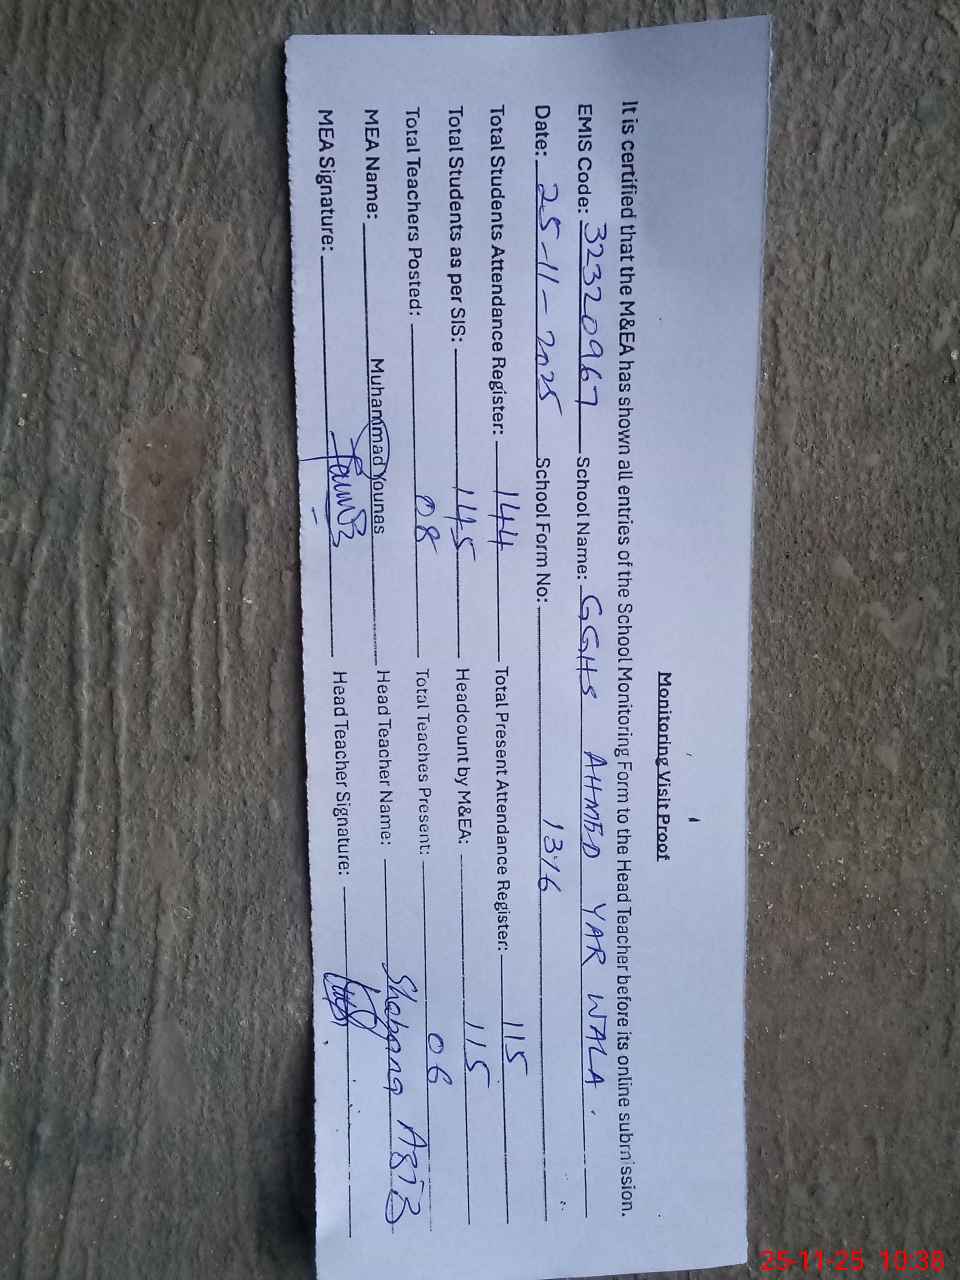 Monitoring Visit Proof
It is certified that the M&EA has shown all entries of the School Monitoring Form to the Head Teacher before its online submission.
EMIS Code: 32320967 School Name: GGHS AHMED YAR WALA.
Date: 25-11-2025 School Form No: 1376
Total Students Attendance Register: 144 Total Present Attendance Register: 115
Total Students as per SIS: 145 Headcount by M&EA: 115
Total Teachers Posted: 08 Total Teaches Present: 06
MEA Name: Muhammad Younas Head Teacher Name: Shabana
MEA Signature: Head Teacher Signature:
25-11-25 10:38